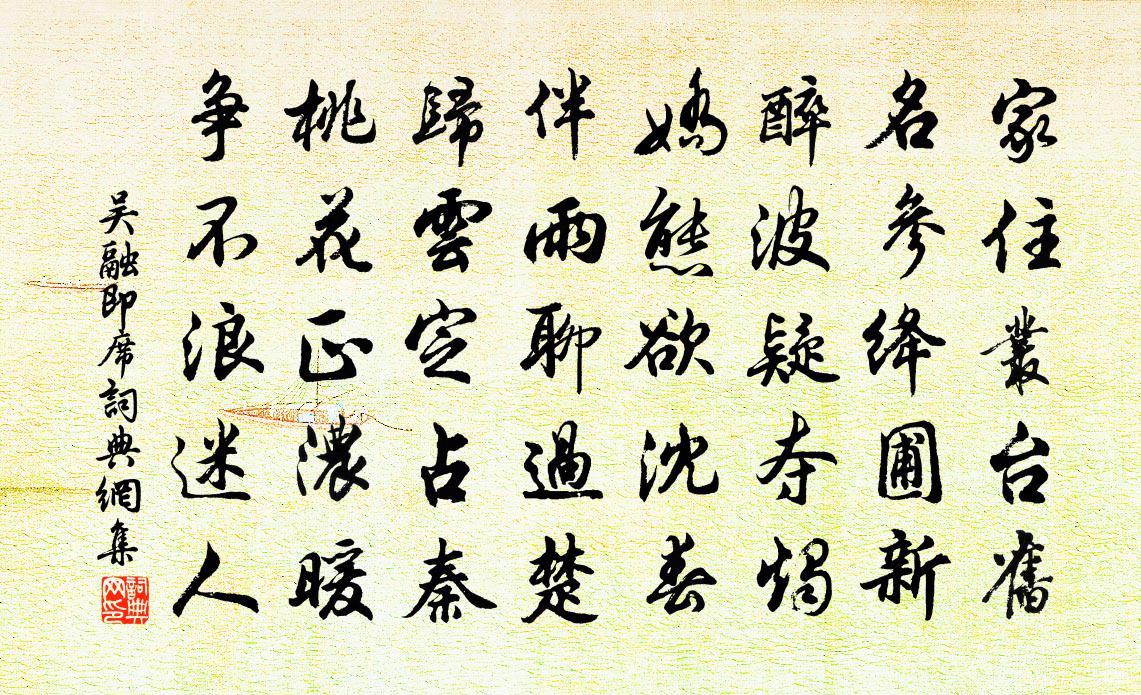 家住叢台舊
名參絳圃新
醉波疑夺燭
嬌態欲沈春
伴雨聊過楚
歸雲定占秦
桃花正濃暖
争不浪迷人
吴融即席詞典網集
詞典網印